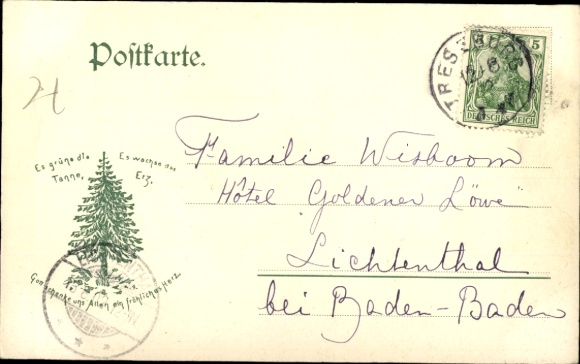 Postkarte.
5
TRESEBURG
12 8
DEUTSCHES REICH
Es grüne die Tanne,
Es wachse das Erz,
Gott schenke uns Allen ein fröhliches Herz.
Familie Wisboom
Hôtel Goldener Löwe
Lichtenthal
bei Baden-Baden